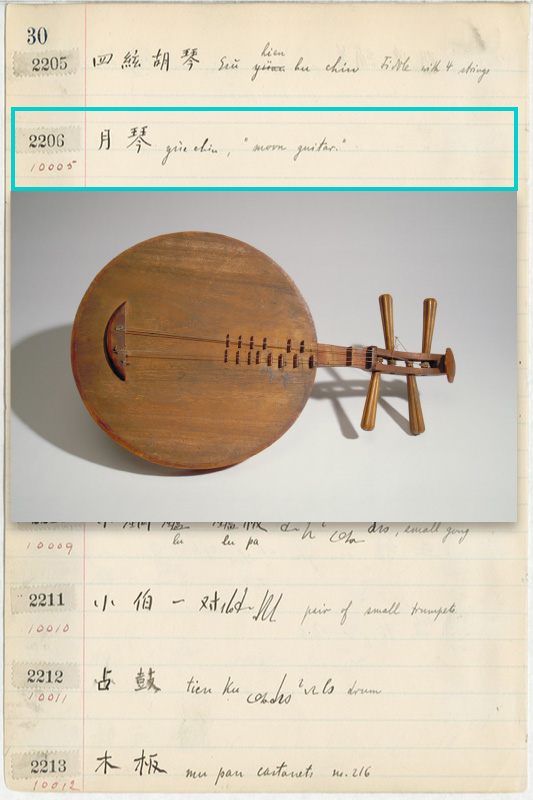 30
2205 四絃胡琴 hien hu chin Fiddle with 4 strings
2206 月琴 yüe chin, "moon guitar."
10005
small gong
10009 lu lu pa
2211 小伯一对 pair of small trumpets.
10010
2212 占鼓 tien ku drum
10011
2213 木板 mu pan castanets no. 216
10012